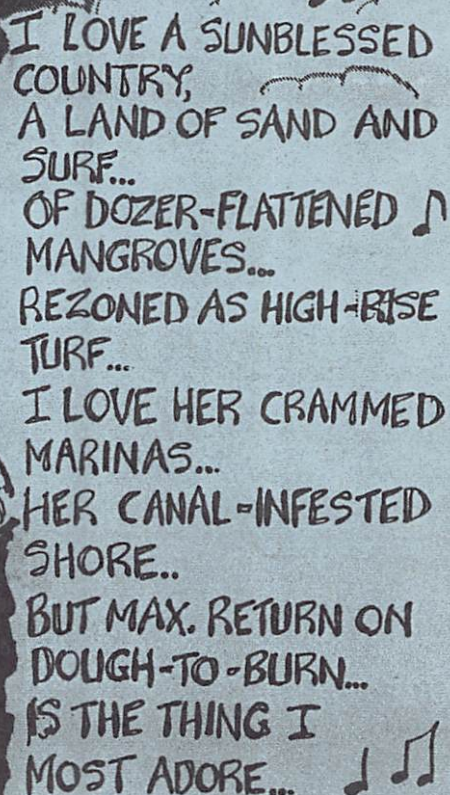 I LOVE A SUNBLESSED
COUNTRY,
A LAND OF SAND AND
SURF...
OF DOZER-FLATTENED
MANGROVES...
REZONED AS HIGH-RISE
TURF...
I LOVE HER CRAMMED
MARINAS...
HER CANAL-INFESTED
SHORE..
BUT MAX. RETURN ON
DOUGH-TO-BURN...
IS THE THING I
MOST ADORE...